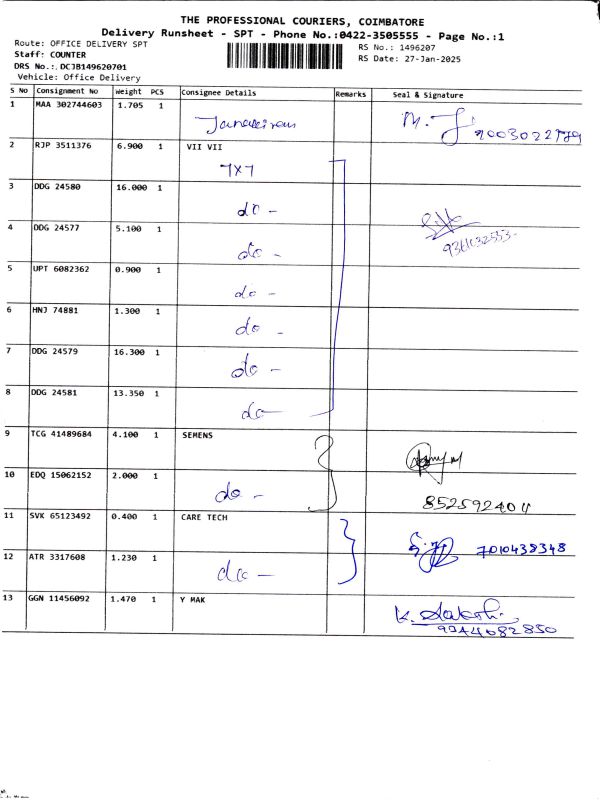 THE PROFESSIONAL COURIERS, COIMBATORE
Delivery Runsheet - SPT - Phone No.:0422-3505555 - Page No.:1
Route: OFFICE DELIVERY SPT
Staff: COUNTER
DRS No.:.DCJB149620701
Vehicle: Office Delivery
RS No.: 1496207
RS Date: 27-Jan-2025
S No Consignment No Weight PCS Consignee Details Remarks Seal & Signature
1 MAA 302744603 1.705 1
M.
2 RJP 3511376 6.900 1 VII VII
7x7
3 DDG 24580 16.000 1
do -
4 DDG 24577 5.100 1
do -
5 UPT 6082362 0.900 1
do -
6 HNJ 74881 1.300 1
do -
7 DDG 24579 16.300 1
do -
8 DDG 24581 13.350 1
do -
9 TCG 41489684 4.100 1 SEMENS
10 EDQ 15062152 2.000 1
do -
11 SVK 65123492 0.400 1 CARE TECH
7010438348
12 ATR 3317608 1.230 1
do -
13 GGN 11456092 1.470 1 Y MAK